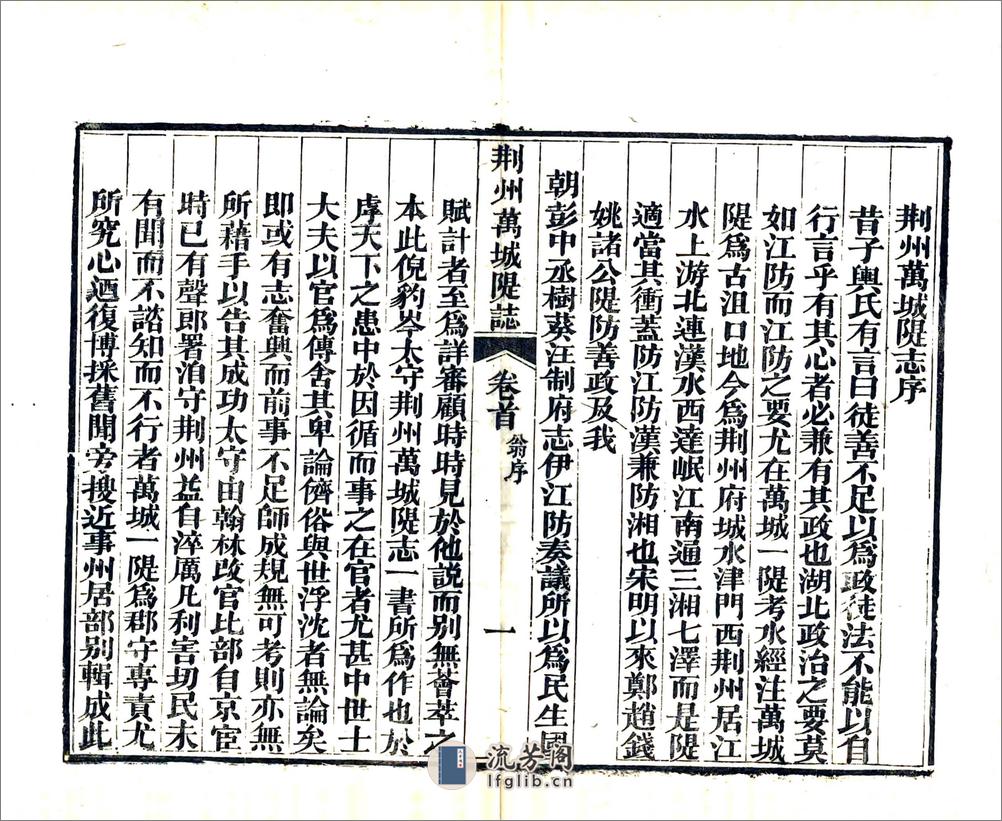 荆州萬城隄志序
昔子輿氏有言曰徒善不足以爲政徒法不能以自
行言乎有其心者必兼有其政也湖北政治之要莫
如江防而江防之要尤在萬城一隄考水經注萬城
隄爲古沮口地今爲荆州府城水津門西荆州居江
水上游北連漢水西達岷江南逼三湘七澤而是隄
適當其衝蓋防江防漢兼防湘也宋明以來鄭趙錢
姚諸公隄防善政及我
朝彭中丞樹葵汪制府志伊江防奏議所以爲民生國
荆州萬城隄誌
卷首
翁序
一
賦計者至爲詳審顧時時見於他説而别無薈萃之
本此倪豹岑太守荆州萬城隄志一書所爲作也於
虖天下之患中於因循而事之在官者尤甚中世士
大夫以官爲傳舍其卑論儕俗與世浮沈者無論矣
即或有志奮興而前事不足師成規無可考則亦無
所藉手以告其成功太守由翰林改官比部自京宦
時已有聲郎署洎守荆州益自淬厲凡利害切民未
有聞而不諮知而不行者萬城一隄爲郡守專責尤
所究心迺復博採舊聞旁搜近事州居部别輯成此
流芳阁
lfglib.cn